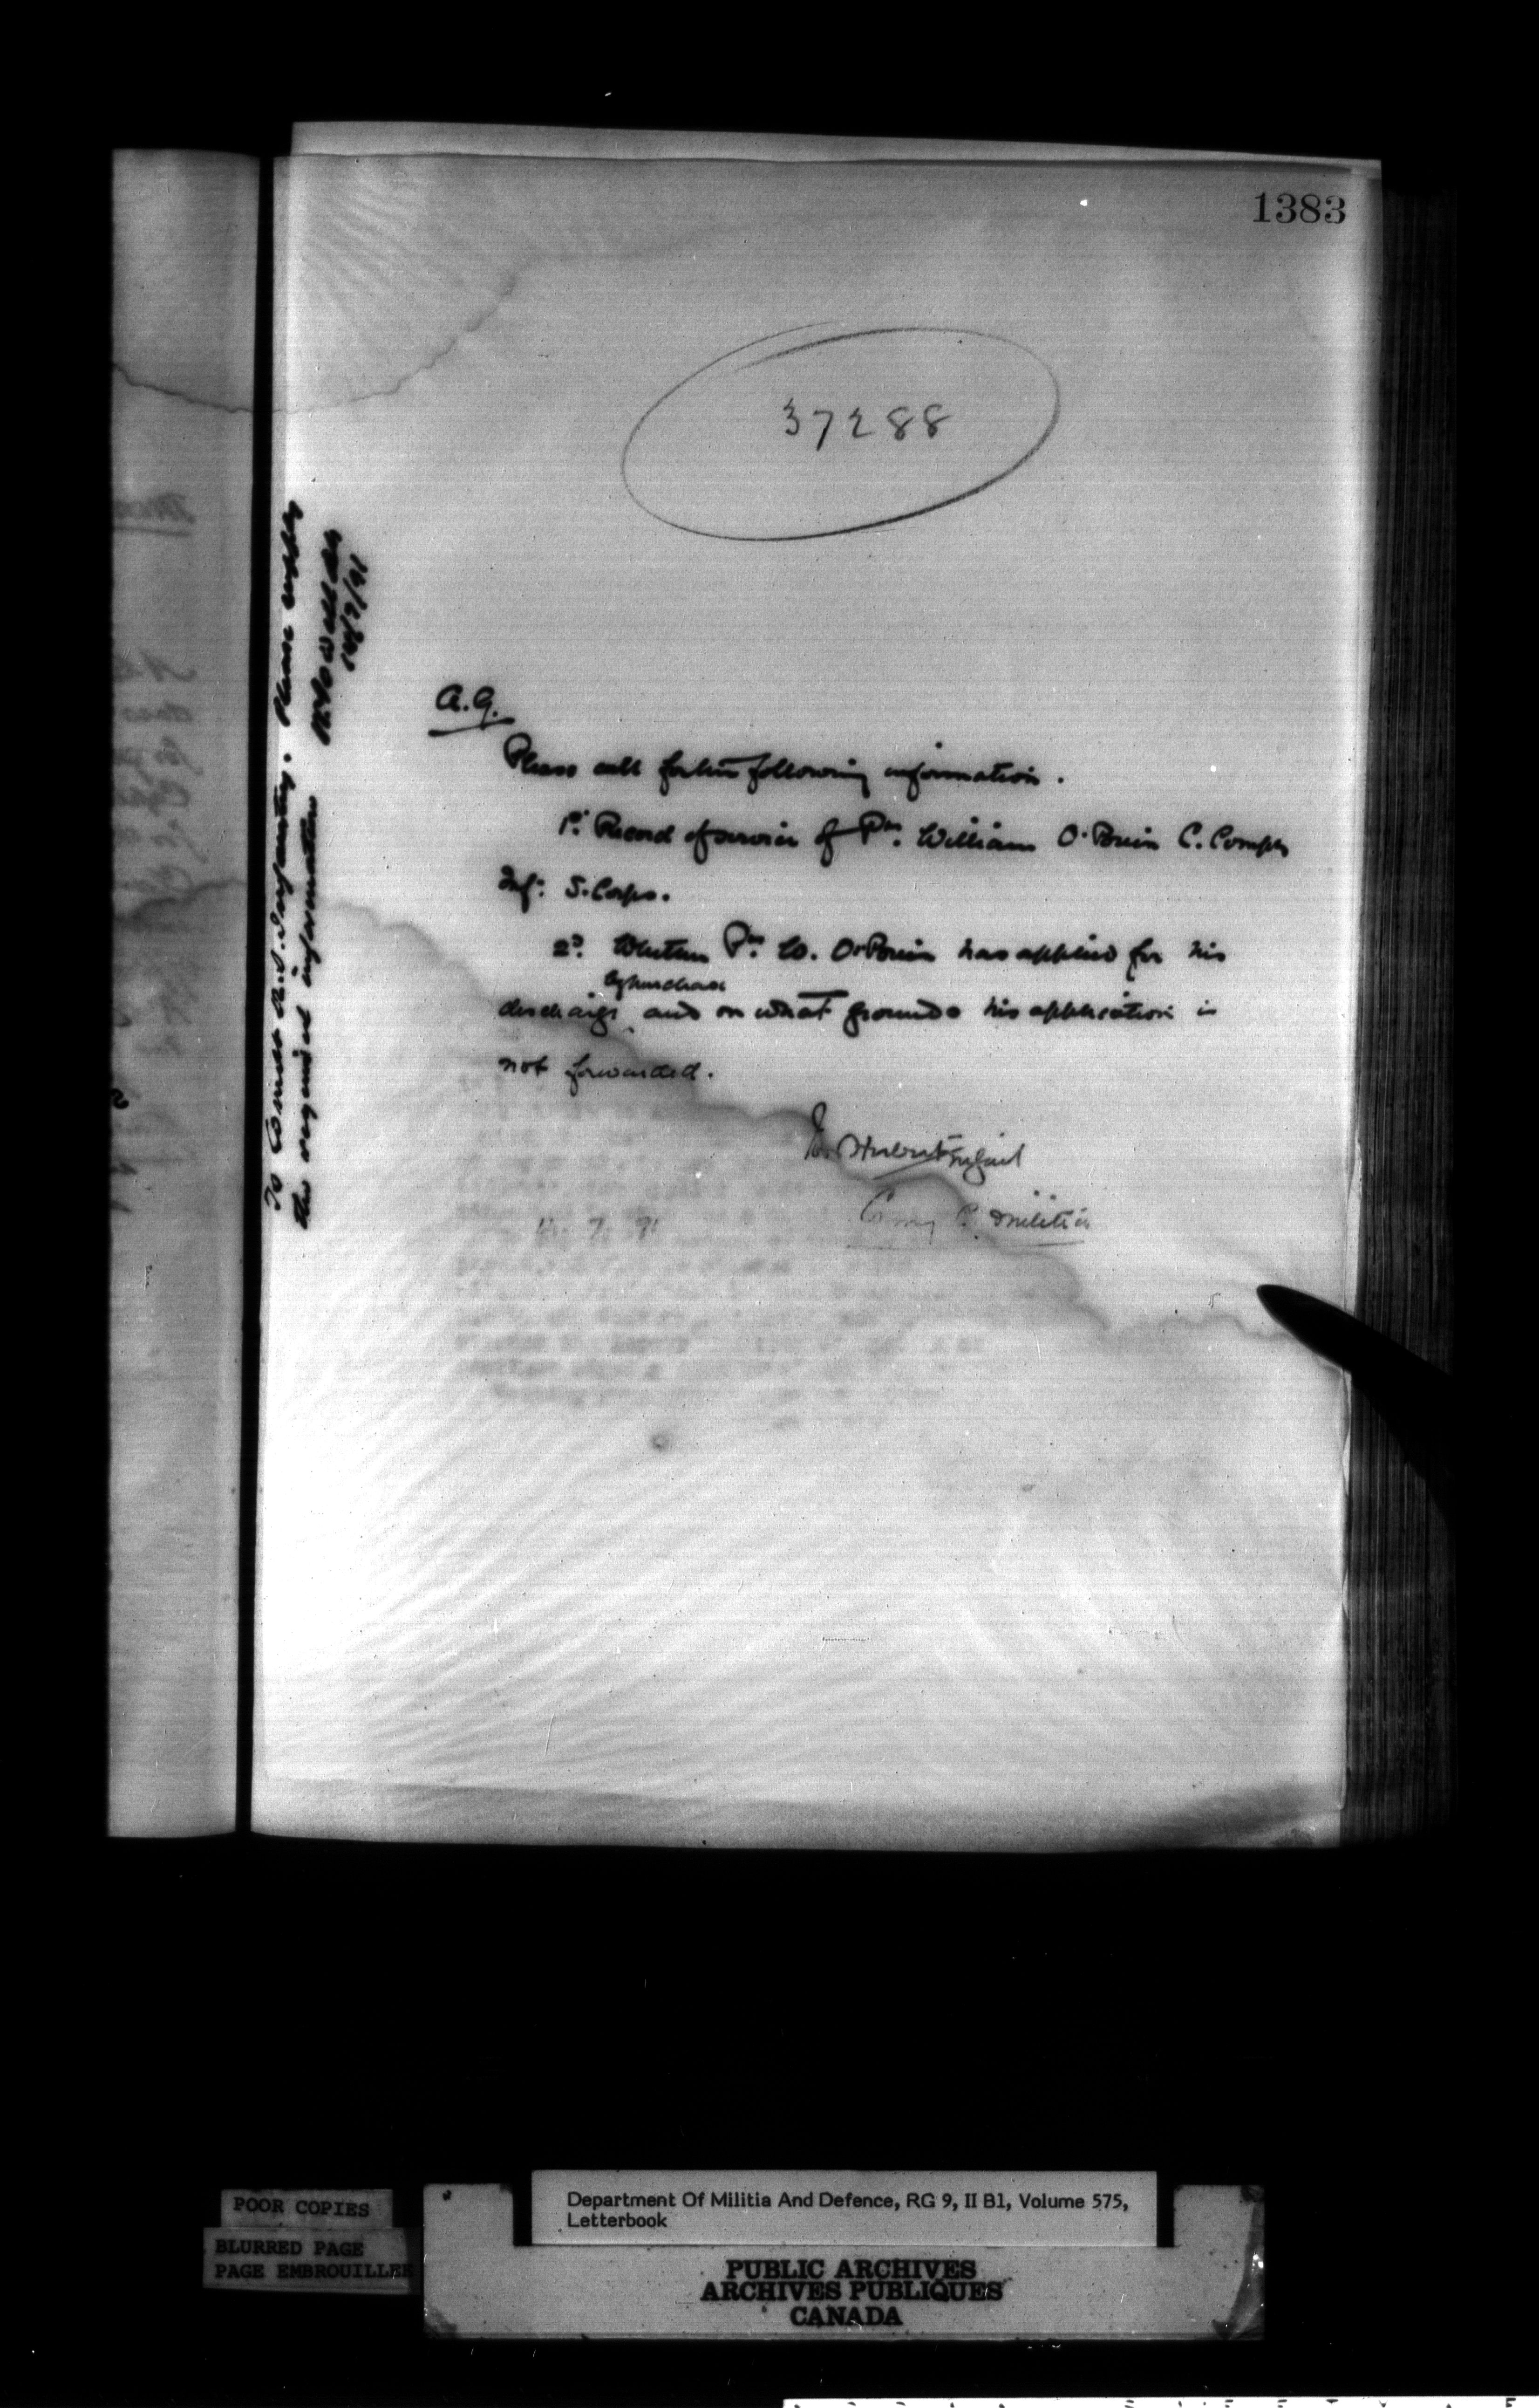 1383
37288
A.G.
Please call for the following information.
1st. Record of service of Pte. William O'Brien C. Compy
Inf: S. Corps.
2d. Whether Pte. W. O'Brien has applied for his
by purchase
discharge and on what grounds his application is
not forwarded.
Comg C. Militia
14. 7. 91
To Commdt R.S. Infantry. Please supply
the required information
14/7/91
POOR COPIES
BLURRED PAGE
PAGE EMBROUILLEE
Department Of Militia And Defence, RG 9, II B1, Volume 575,
Letterbook
PUBLIC ARCHIVES
ARCHIVES PUBLIQUES
CANADA